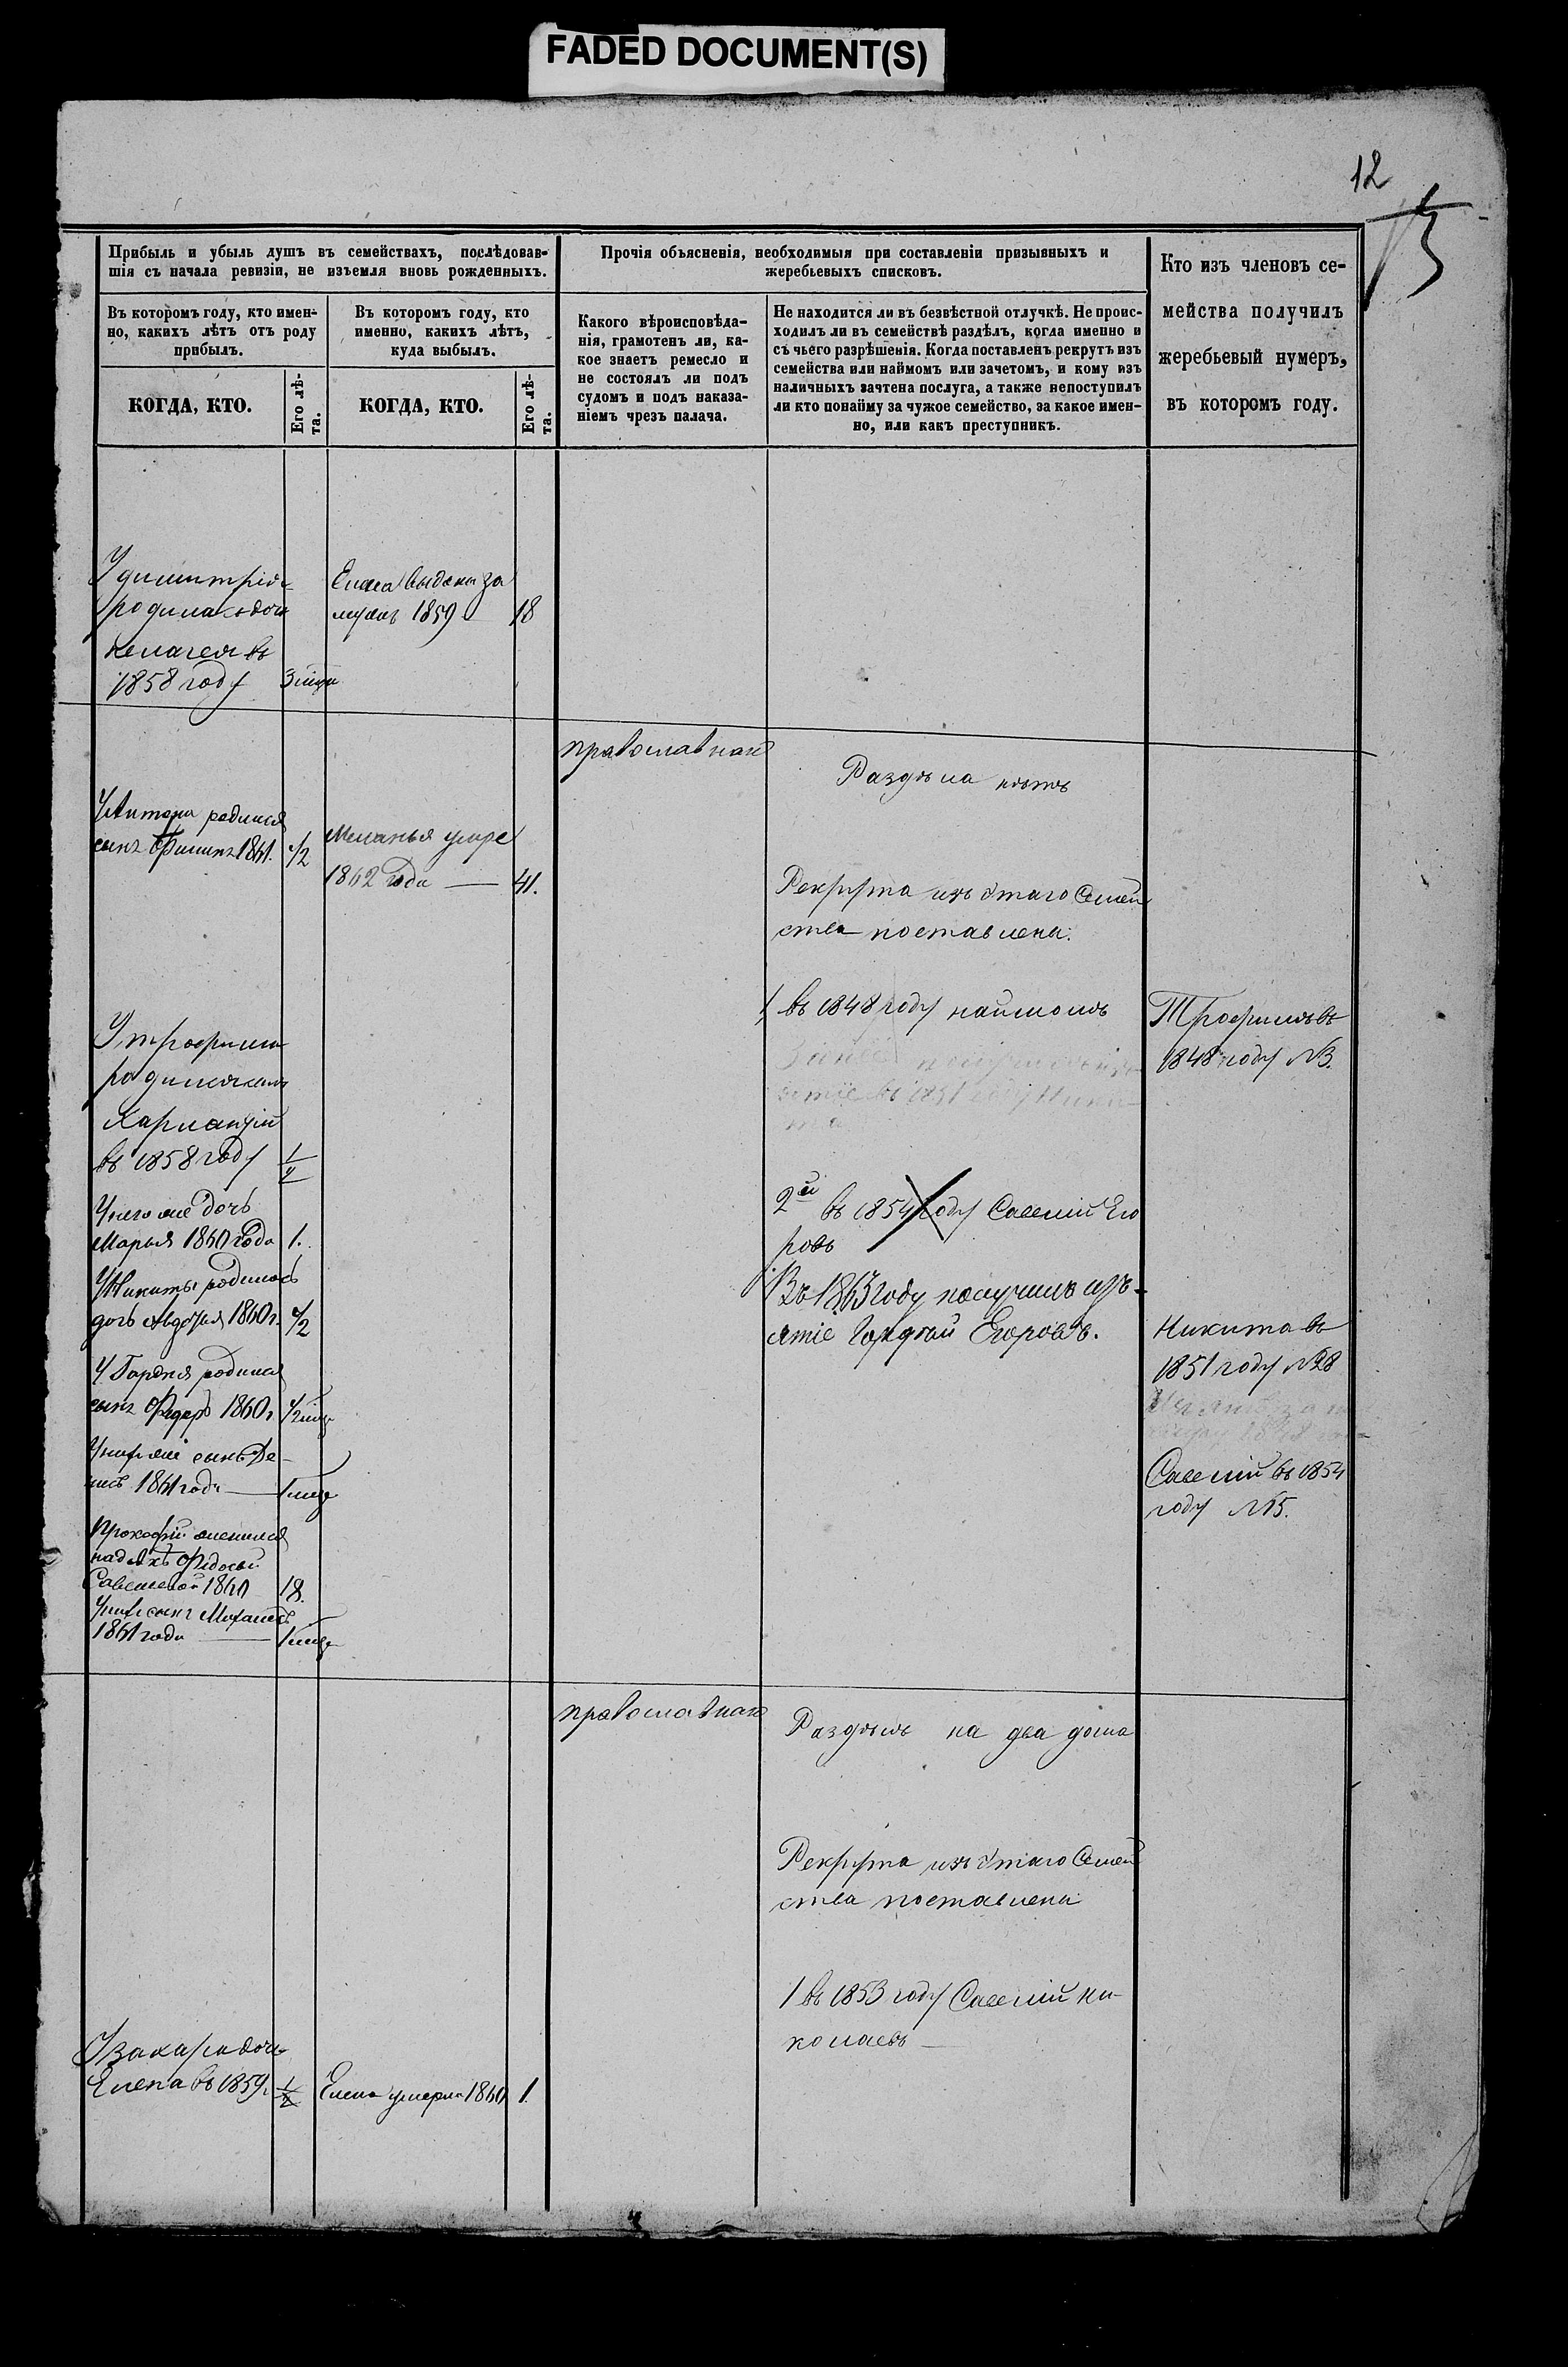 FADED DOCUMENT(S)
12
Прибыль и убыль душъ въ семействахъ, послѣдовав-
шія съ начала ревизіи, не изъемля вновь рожденныхъ.
Въ которомъ году, кто имен-
но, какихъ лѣтъ отъ роду
прибылъ.
КОГДА, КТО.
Его лѣ-
та.
Въ которомъ году, кто
именно, какихъ лѣтъ,
куда выбылъ.
КОГДА, КТО.
Его лѣ-
та.
Прочія объясненія, необходимыя при составленіи призывныхъ и
жеребьевыхъ списковъ.
Какого вѣроисповѣда-
нія, грамотенъ ли, ка-
кое знаетъ ремесло и
не состоялъ ли подъ
судомъ и подъ наказа-
ніемъ чрезъ палача.
Не находится ли въ безвѣстной отлучкѣ. Не проис-
ходилъ ли въ семействѣ раздѣлъ, когда именно и
съ чьего разрѣшенія. Когда поставленъ рекрутъ изъ
семейства или наймомъ или зачетомъ, и кому изъ
наличныхъ зачтена послуга, а также непоступилъ
ли кто понайму за чужое семейство, за какое имен-
но, или какъ преступникъ.
Кто изъ членовъ се-
мейства получилъ
жеребьевый нумеръ,
въ которомъ году.
У димитрія
родилась дочь
пелагея въ
1858 году
выдана за
мужъ 1859 18
православнаго
Раздѣла нѣтъ
У Антона родился
сынъ Филипъ 1861. 1/2
Меланья умре
1862 года — 41.
Рекрута изъ этаго Семей
ства поставлены.
1 въ 1848 году наймомъ
Трофимъ въ
1848 году №3.
У трофима
родился сынъ
Харлампій
въ 1858 году
У него же дочь
Марья 1860 года 1.
У Никиты родилась
дочь Авдотья 1860 г. 1/2
У Гордея родился
сынъ Федоръ 1860 г
У него же сынъ Де-
нисъ 1861 года —
Прокофій женился
на девке Федосьи
Савельевой 1860 18.
У него сынъ Михаилъ
1861 года —
2й въ 1854 году Савелій Его
ровъ
Въ 1863 году получилъ изъ-
ятіе Гордѣй Егоровъ.
Никита въ
1851 году №28
Савелій въ 1854
году №15.
православнаго
Раздѣлъ на два дома
Рекрута изъ этаго Семей
ства поставлены
1 въ 1853 году Савелій Ни-
колаевъ —
У Захара дочь
Елена въ 1859 г.
Елена умерла 1860 1.